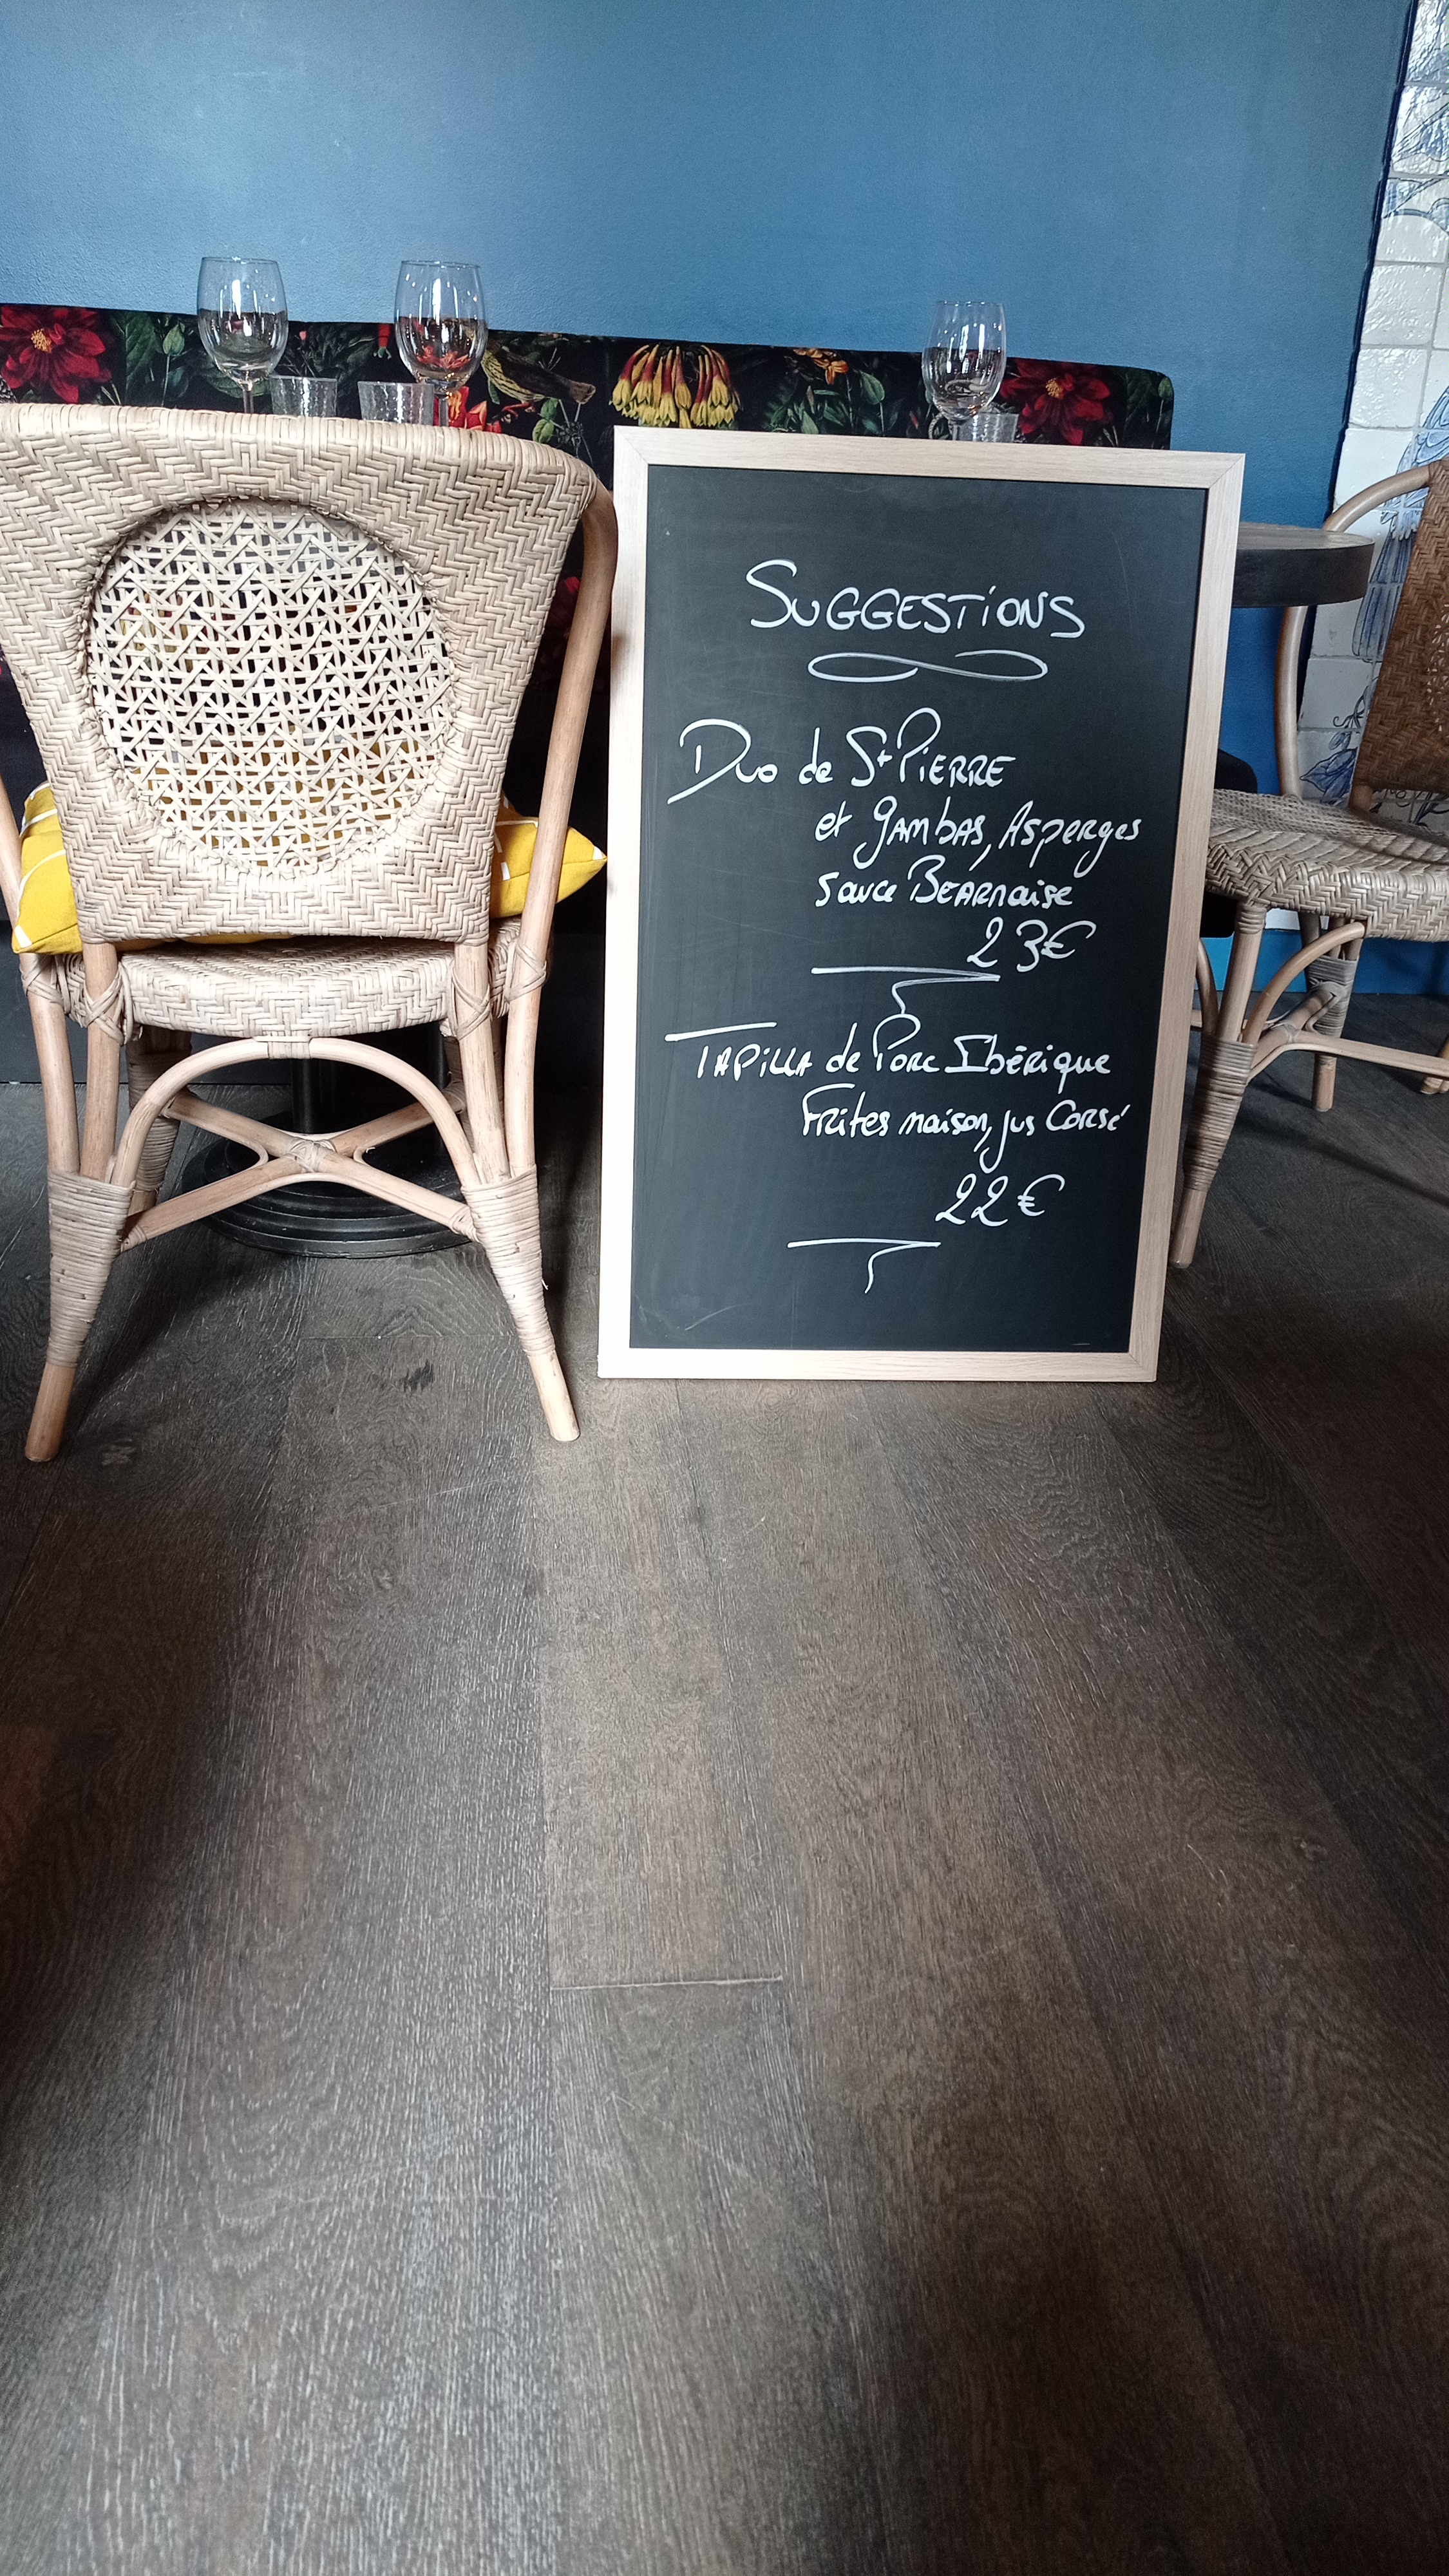 SUGGESTIONS
Duo de St PIERRE
et gambas, Asperges
sauce BEARnaise
23€
TAPILLA de Porc Ibérique
Frites maison, jus Corsé
22€